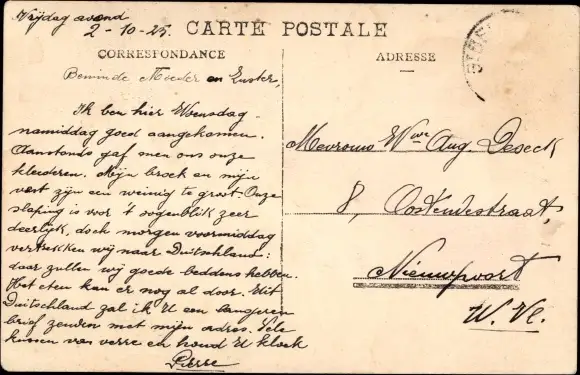 Vrijdag avond
2-10-25
CARTE POSTALE
CORRESPONDANCE
ADRESSE
Beminde Moeder en Zuster,
Ik ben hier Woensdag
namiddag goed aangekomen.
Aanstonds gaf men ons onze
kleederen. Mijn broek en mijn
vest zijn een weinig te groot. Onze
slaping is voor 't oogenblik zeer
deerlijk, doch morgen voormiddag
vertrekken wij naar Duitschland:
daar zullen wij goede beddens hebben.
Het eten kan er nog al door. Uit
Duitschland zal ik U een langeren
brief zenden met mijn adres. Vele
kussen van verre en houd U kloek
Pierre
Mevrouw Wwe Aug. Deseck
8, Oostendestraat,
Nieuwpoort
W. Vl.